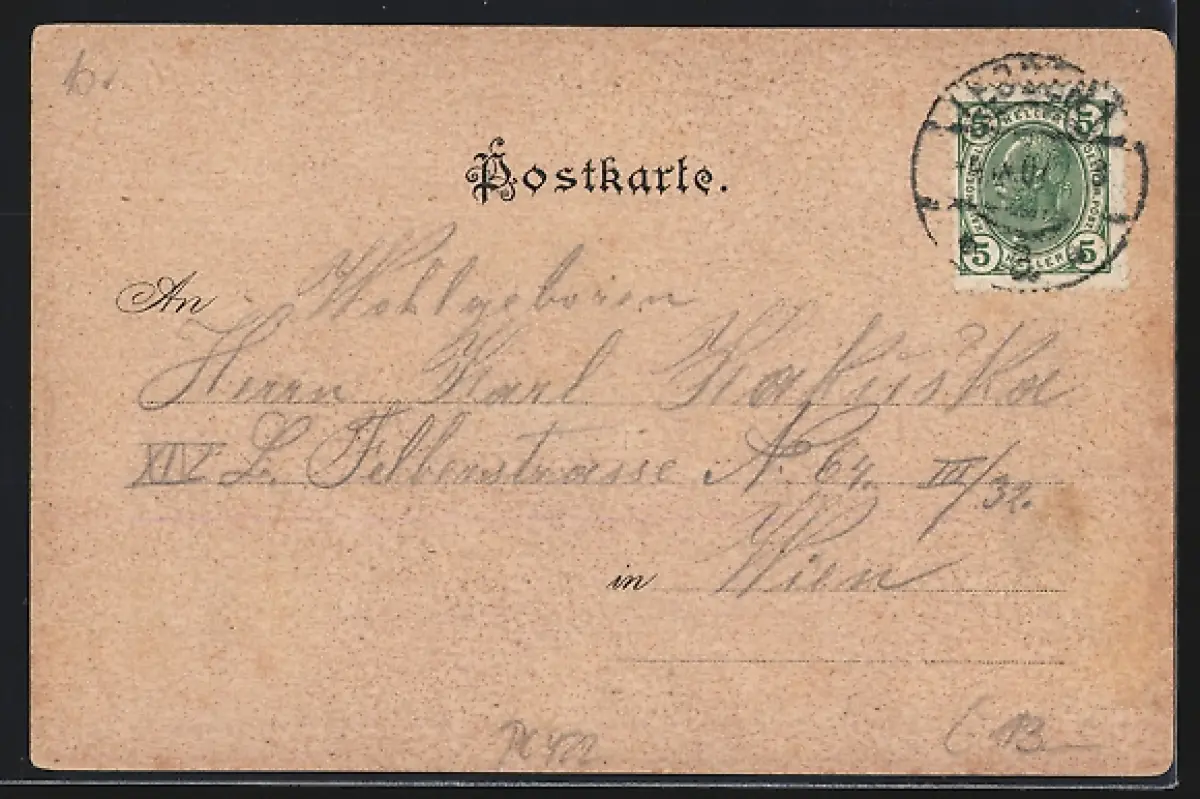 Postkarte.
5 HELLER 5
5 HELLER 5
An Wohlgeboren
Herrn Karl Kakuška
XIV L. Felberstrasse N. 64. III/32.
in Wien
13